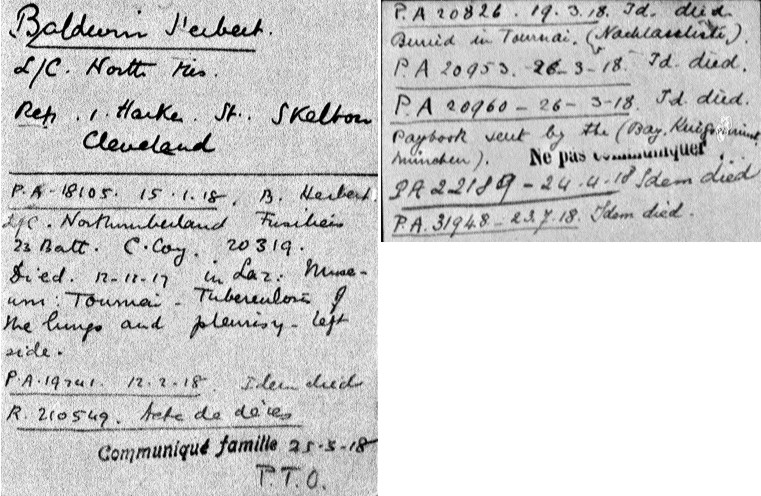 Baldwin Herbert.
L/C. North. Fus.
Rep. 1. Harker St. Skelton
Cleveland
P.A-18105. 15.1.18. B. Herbert.
L/C. Northumberland Fusiliers
23 Batt. C. Coy. 20319.
Died. 12-12-17 in Laz: Muse-
um: Tournai - Tuberculosis of
the lungs and pleurisy - left
side.
P.A.19741. 12.2.18. Idem died
R. 210549. Acte de décès
Communiqué famille 25-5-18
P.T.O.
P.A 20826. 19.3.18. Id. died
Buried in Tournai. (Nachlassliste).
P.A 20953. 26-3-18. Id. died.
P.A 20960 - 26-3-18. Id. died.
Paybook sent by the (Bay.
München).
Ne pas communiquer
P.A 22189 - 24.4.18 Idem died
P.A. 31948 - 23.7.18. Idem died.